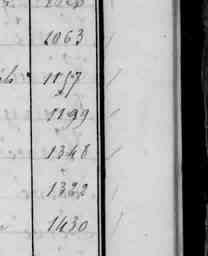 1063
1157
1199
1348
1322
1430